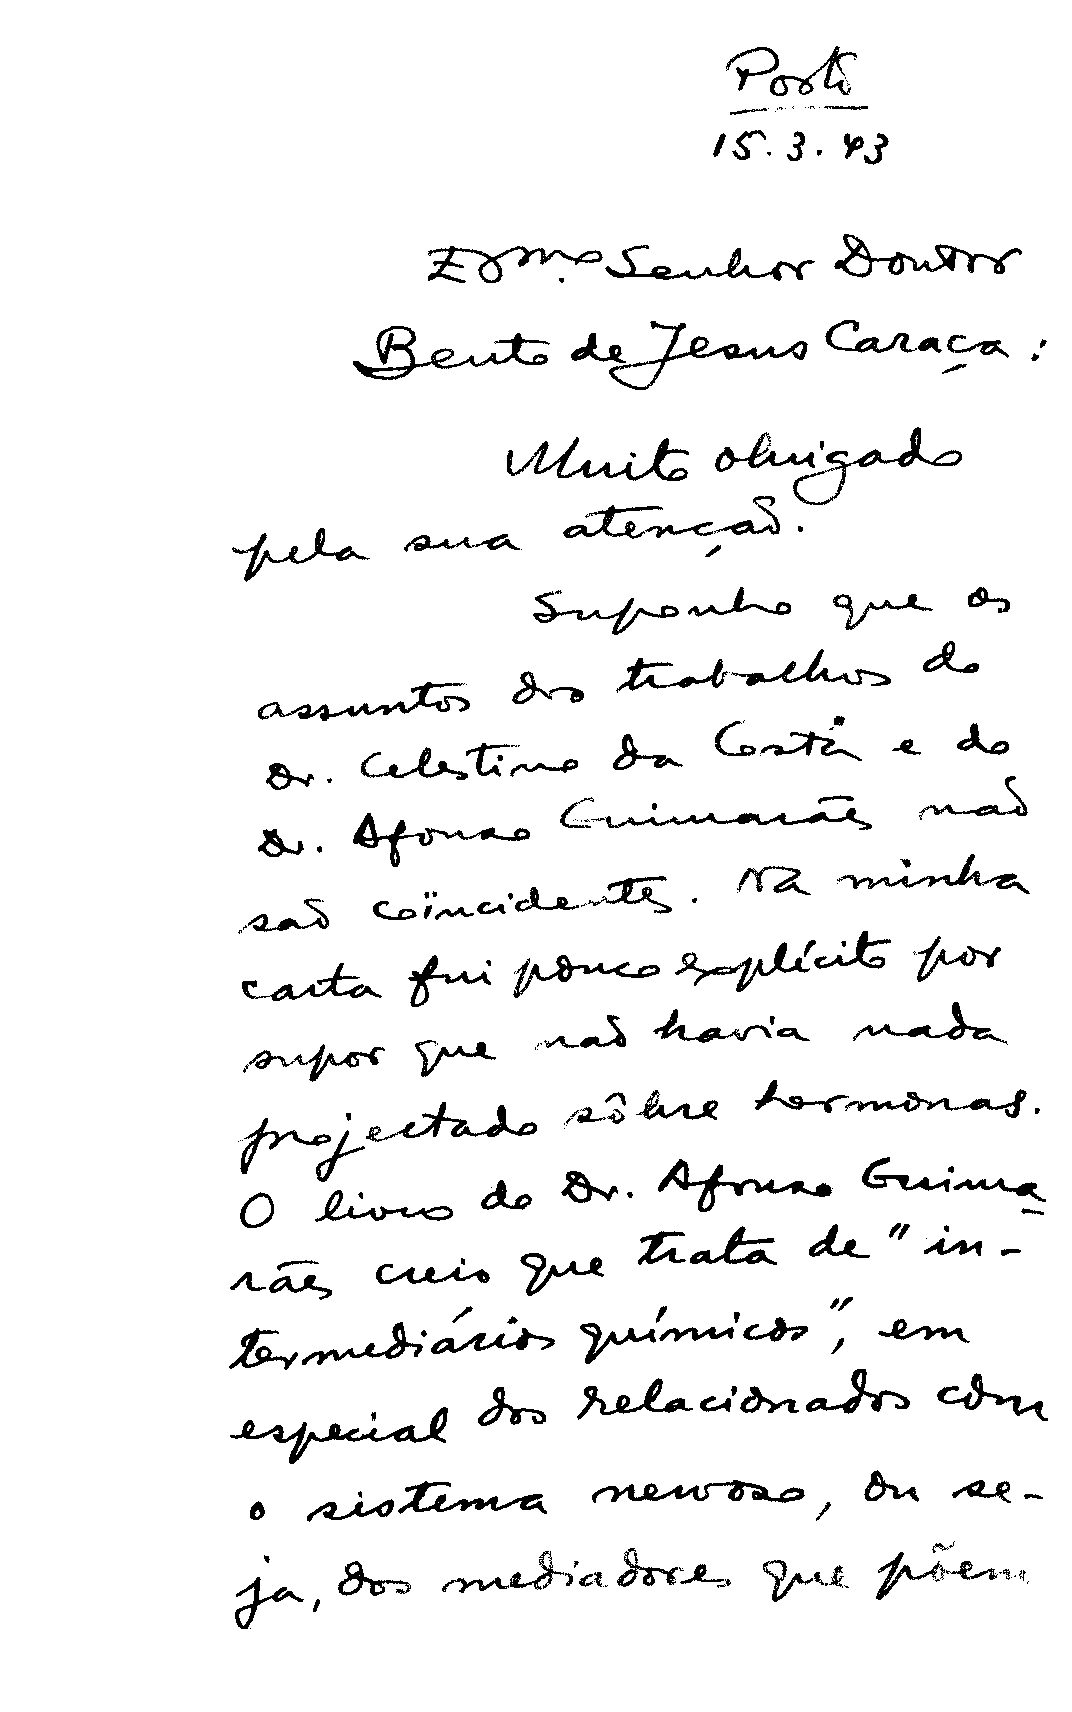 Porto
15.3.43
Exmo. Senhor Doutor
Bento de Jesus Caraça:
Muito obrigado
pela sua atenção.
Suponho que os
assuntos dos trabalhos do
Dr. Celestino da Costa e do
Dr. Afonso Guimarães não
são coïncidentes. Na minha
carta fui pouco explícito por
supor que não havia nada
projectado sôbre hormonas.
O livro do Dr. Afonso Guima
rães creio que trata de "in-
termediários químicos", em
especial dos relacionados com
o sistema nervoso, ou se-
ja, dos mediadores que põem